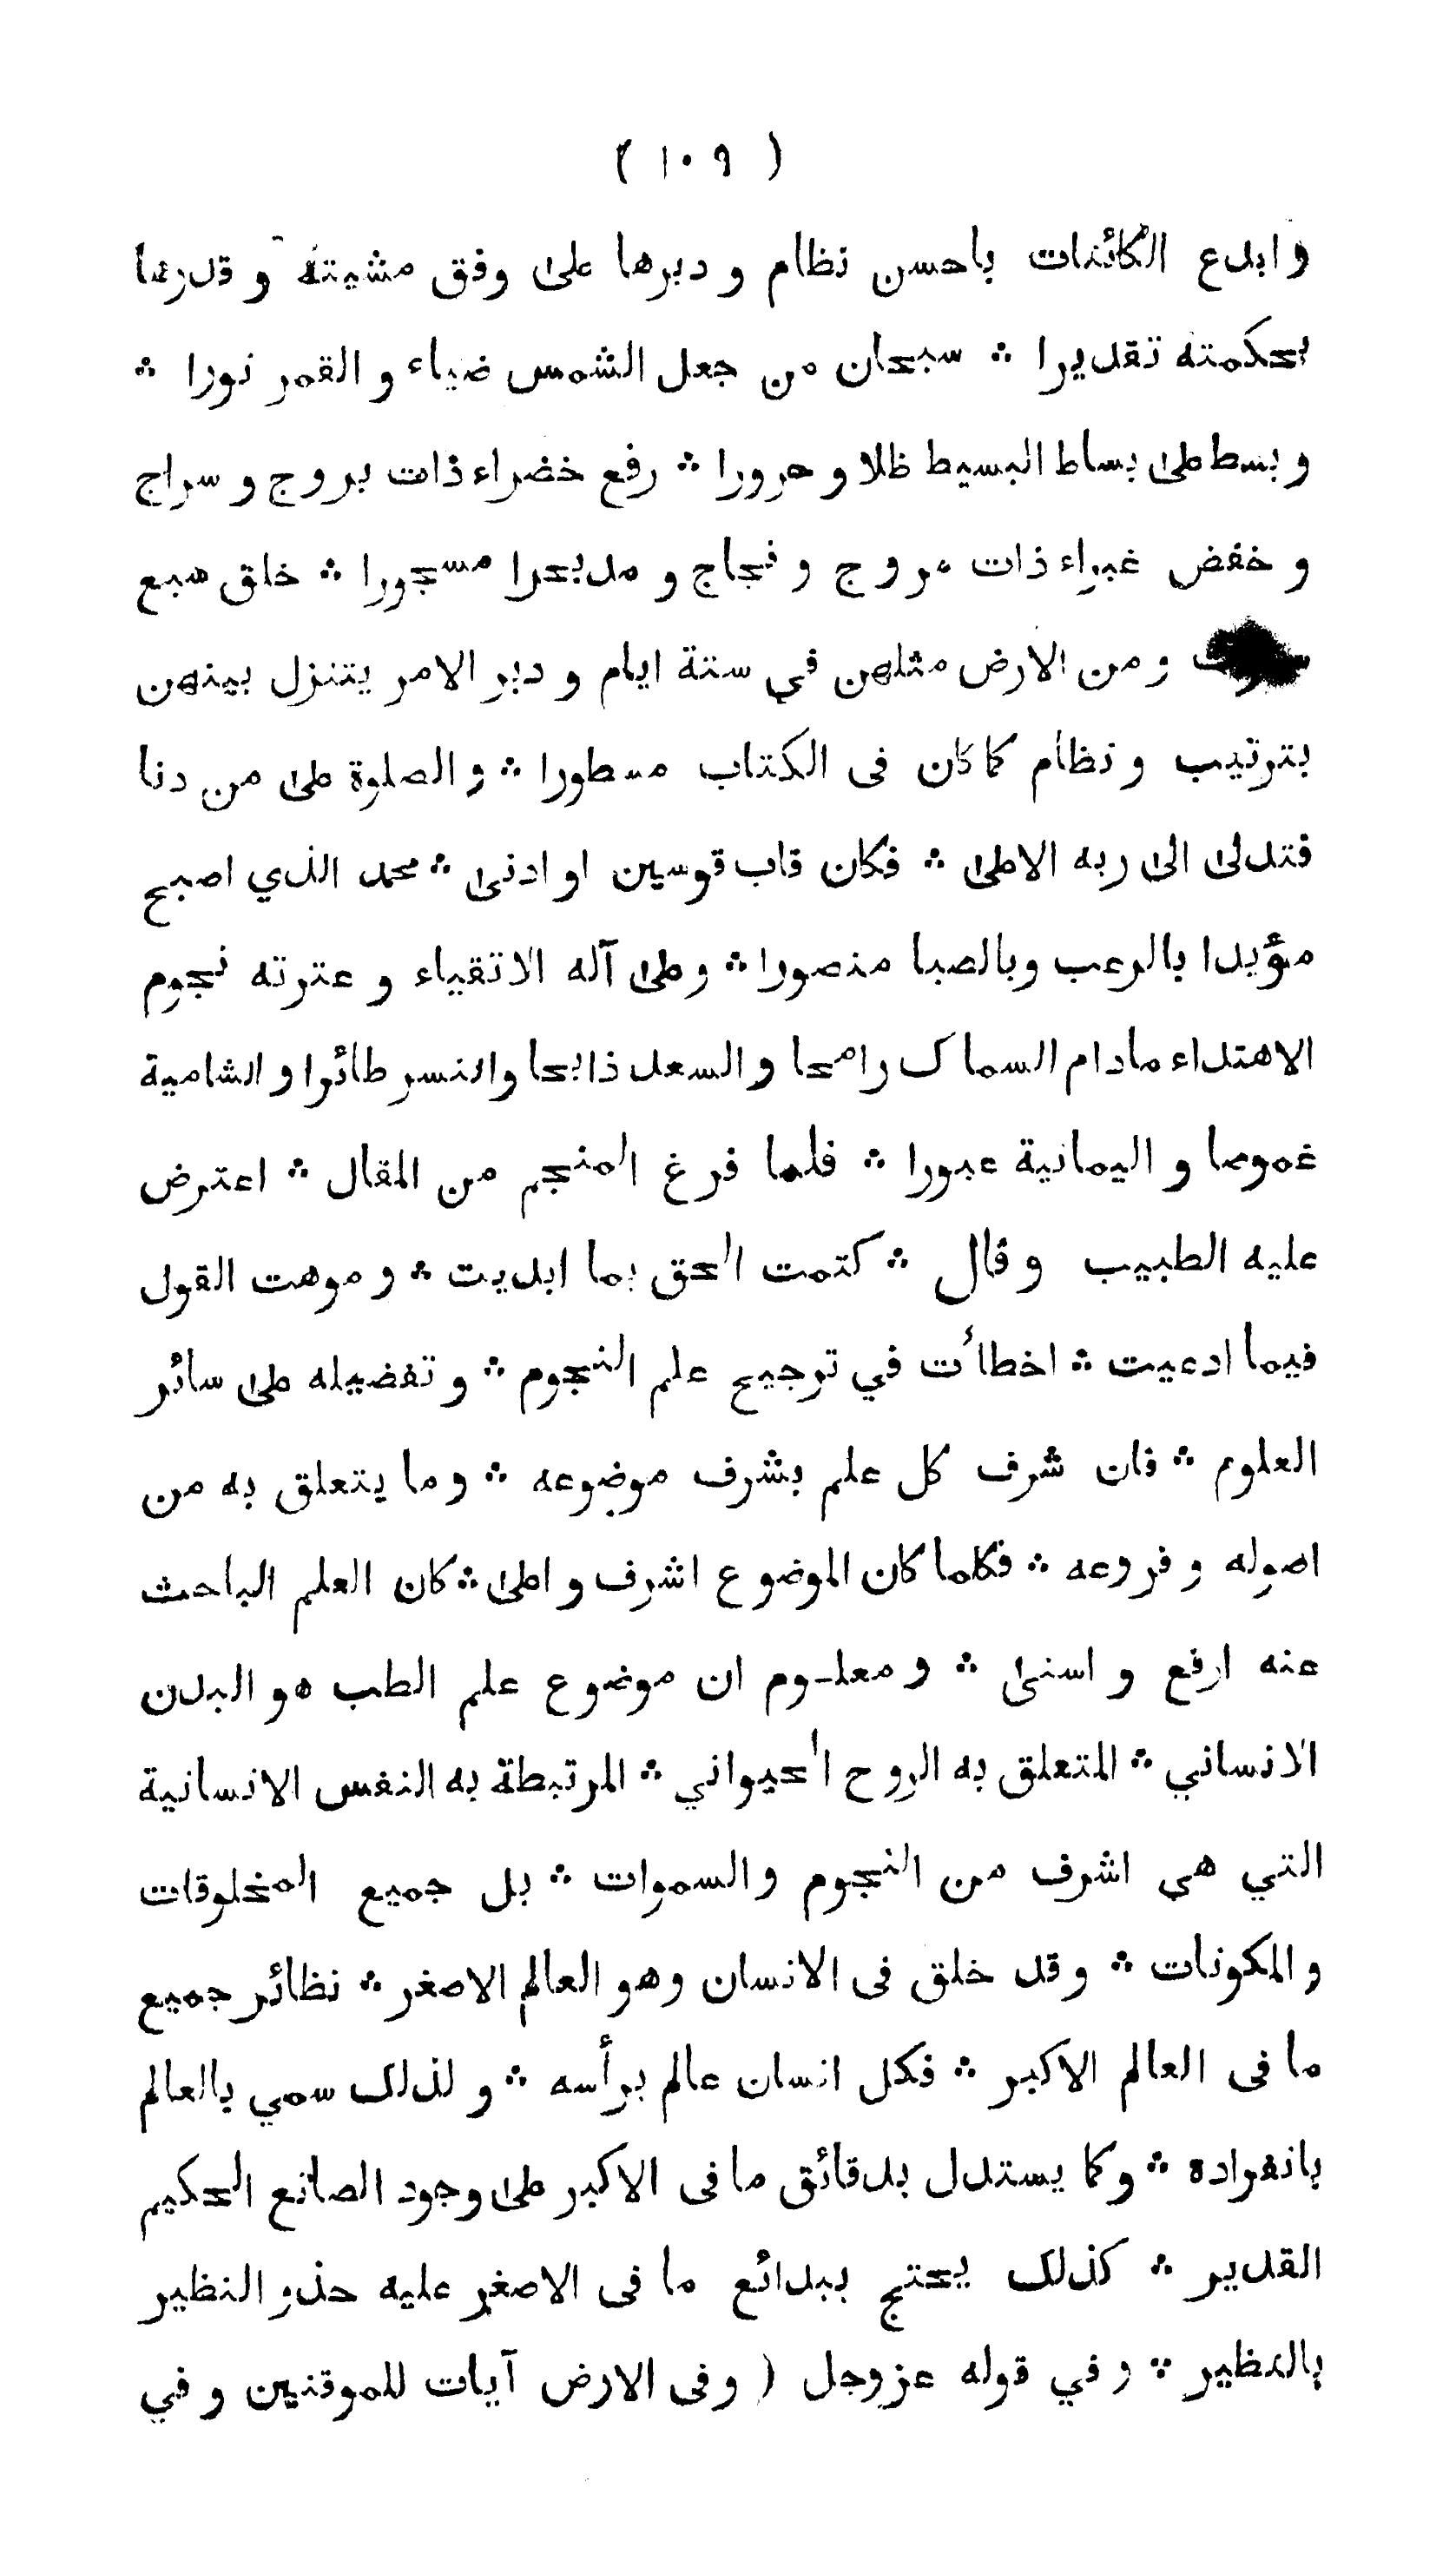 ( ١٠٩ )
و ابدع الكائنات باحسن نظام و دبرها على وفق مشيته و قدرها
بحكمته تقديرا ⁂ سبحان من جعل الشمس ضياء و القمر نورا ⁂
و بسط على بساط البسيط ظلا و حرورا ⁂ رفع خضراء ذات بروج و سراج
و خفض غبراء ذات مروج و فجاج و مد بحرا مسجورا ⁂ خلق سبع
و من الارض مثلهن في ستة ايام و دبر الامر يتنزل بينهن
بترتيب و نظام كما كان فى الكتاب مسطورا ⁂ و الصلوة على من دنا
فتدلى الى ربه الاعلى ⁂ فكان قاب قوسين او ادنى ⁂ محمد الذي اصبح
مؤيدا بالرعب وبالصبا منصورا ⁂ وعلى آله الاتقياء و عترته نجوم
الاهتداء مادام السماك رامحا و السعد ذابحا والنسر طائرا و الشامية
غموصا و اليمانية عبورا ⁂ فلما فرغ المنجم من المقال ⁂ اعترض
عليه الطبيب و قال ⁂ كتمت الحق بما ابديت ⁂ و موهت القول
فيما ادعيت ⁂ اخطأت في ترجيح علم النجوم ⁂ و تفضيله على سائر
العلوم ⁂ فان شرف كل علم بشرف موضوعه ⁂ و ما يتعلق به من
اصوله و فروعه ⁂ فكلما كان الموضوع اشرف و اعلى ⁂ كان العلم الباحث
عنه ارفع و اسنى ⁂ و معلوم ان موضوع علم الطب هو البدن
الانساني ⁂ المتعلق به الروح الحيواني ⁂ المرتبطة به النفس الانسانية
التي هي اشرف من النجوم والسموات ⁂ بل جميع المخلوقات
و المكونات ⁂ و قد خلق فى الانسان وهو العالم الاصغر ⁂ نظائر جميع
ما فى العالم الاكبر ⁂ فكل انسان عالم برأسه ⁂ و لذلك سمي بالعالم
بانفراده ⁂ وكما يستدل بدقائق ما فى الاكبر على وجود الصانع الحكيم
القدير ⁂ كذلك يحتج ببدائع ما فى الاصغر عليه حذو النظير
بالنظير ⁂ و في قوله عزوجل ( و فى الارض آيات للموقنين و في